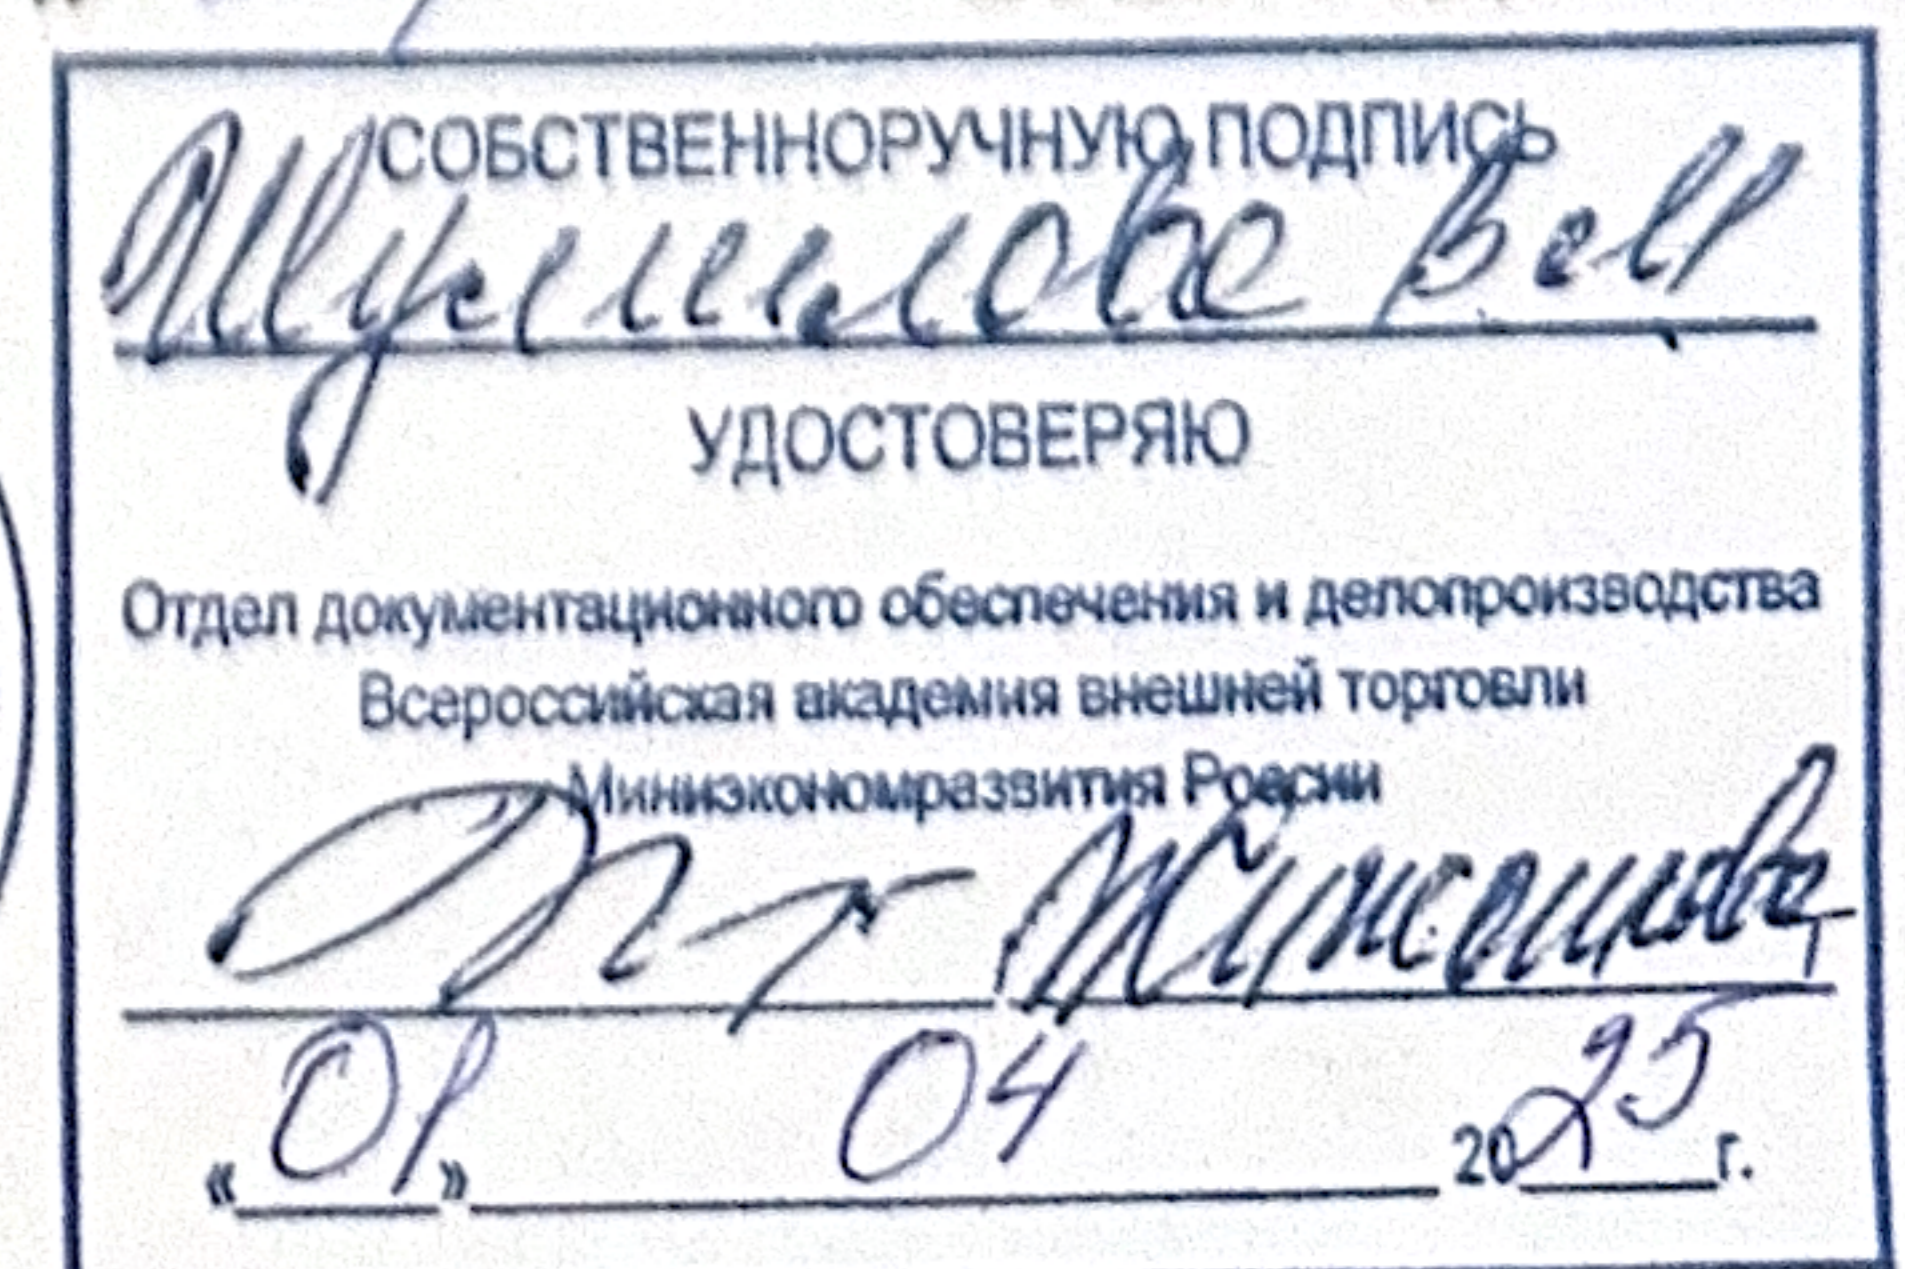 СОБСТВЕННОРУЧНУЮ ПОДПИСЬ
Шумилова В.М.
УДОСТОВЕРЯЮ
Отдел документационного обеспечения и делопроизводства
Всероссийская академия внешней торговли
Минэкономразвития России
«01» 04 2025 г.